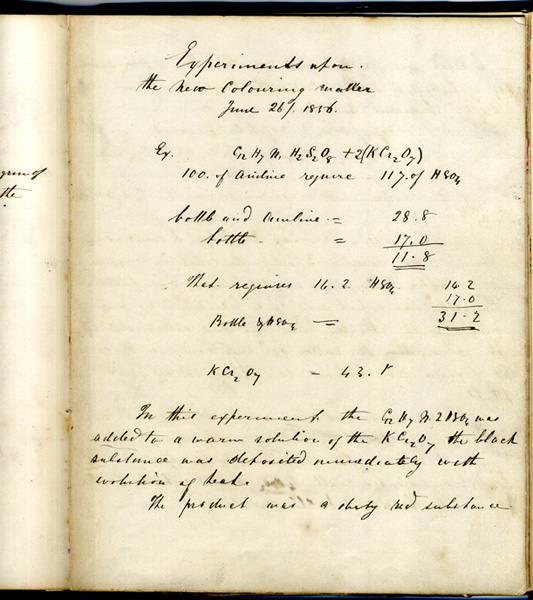 gram of
the
Experiments upon.
the New Colouring matter
June 26/. 1856.
Ex. C12 H7 N, H2S2O8 + 2(KCr2O7)
100. of Aniline require 117. of HSO4
bottle and aniline = 28.8
bottle. = 17.0
11.8
That requires 14.2 HSO4 14.2
17.0
Bottle & HSO4 = 31.2
KCr2O7 = 43.
In this experiment the C12 H7 N. 2HSO4 was
added to a warm solution of the KCr2O7 the black
substance was deposited immediately with
evolution of heat.
The product was a dirty red substance